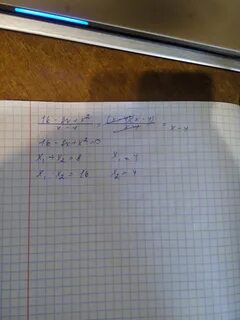 16 - 8x + x² / x - 4 = (x-4)(x-4) / x-4 = x-4
16 - 8x + x² = 0
x₁ + x₂ = 8 x₁ = 4
x₁ · x₂ = 16 x₂ = 4